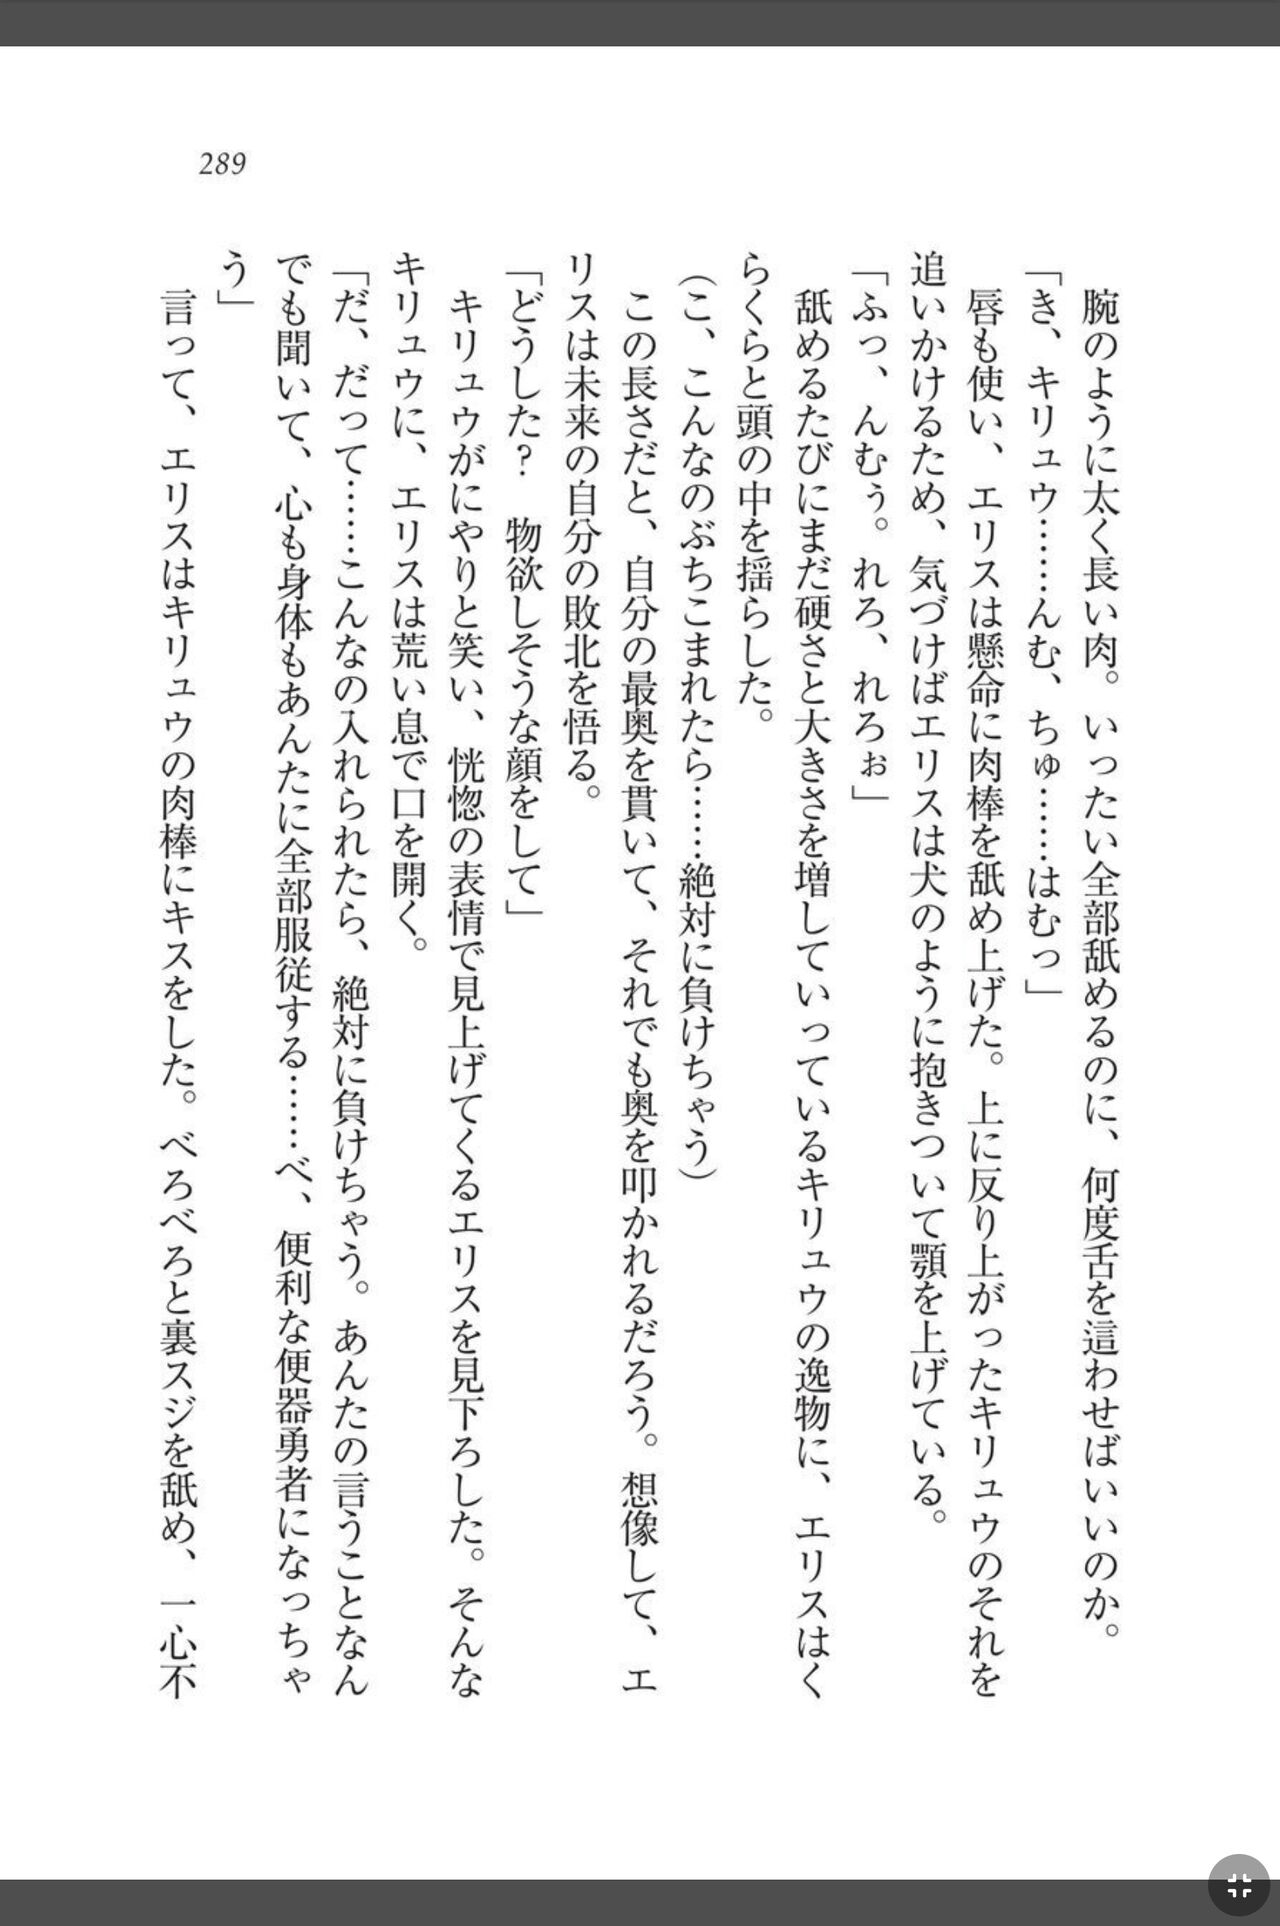 289
腕のように太く長い肉。いったい全部舐めるのに、何度舌を這わせばいいのか。
「き、キリュウ……んむ、ちゅ……はむっ」
唇も使い、エリスは懸命に肉棒を舐め上げた。上に反り上がったキリュウのそれを
追いかけるため、気づけばエリスは犬のように抱きついて顎を上げている。
「ふっ、んむぅ。れろ、れろぉ」
舐めるたびにまだ硬さと大きさを増していっているキリュウの逸物に、エリスはく
らくらと頭の中を揺らした。
（こ、こんなのぶちこまれたら……絶対に負けちゃう）
この長さだと、自分の最奥を貫いて、それでも奥を叩かれるだろう。想像して、エ
リスは未来の自分の敗北を悟る。
「どうした？　物欲しそうな顔をして」
キリュウがにやりと笑い、恍惚の表情で見上げてくるエリスを見下ろした。そんな
キリュウに、エリスは荒い息で口を開く。
「だ、だって……こんなの入れられたら、絶対に負けちゃう。あんたの言うことなん
でも聞いて、心も身体もあんたに全部服従する……べ、便利な便器勇者になっちゃ
う」
言って、エリスはキリュウの肉棒にキスをした。べろべろと裏スジを舐め、一心不